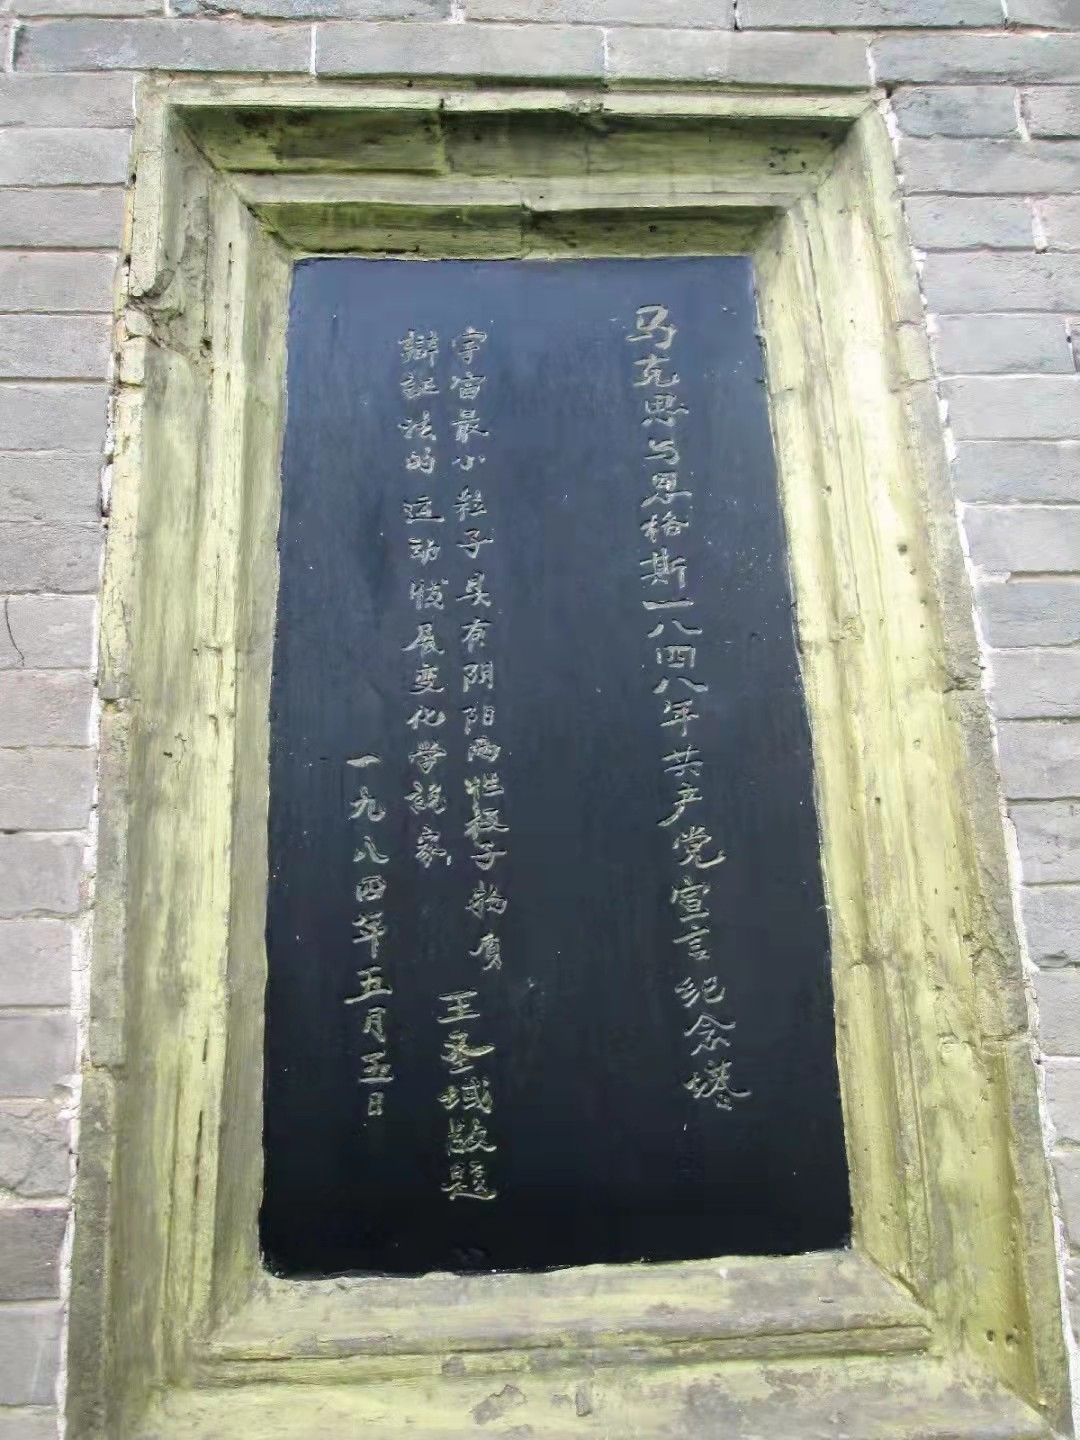 马克思与恩格斯一八四八年共产党宣言纪念塔
宇宙最小粒子具有阴阳两性极子物质
辩証法的运动发展变化学説家
王圣域敬題
一九八四年五月五日